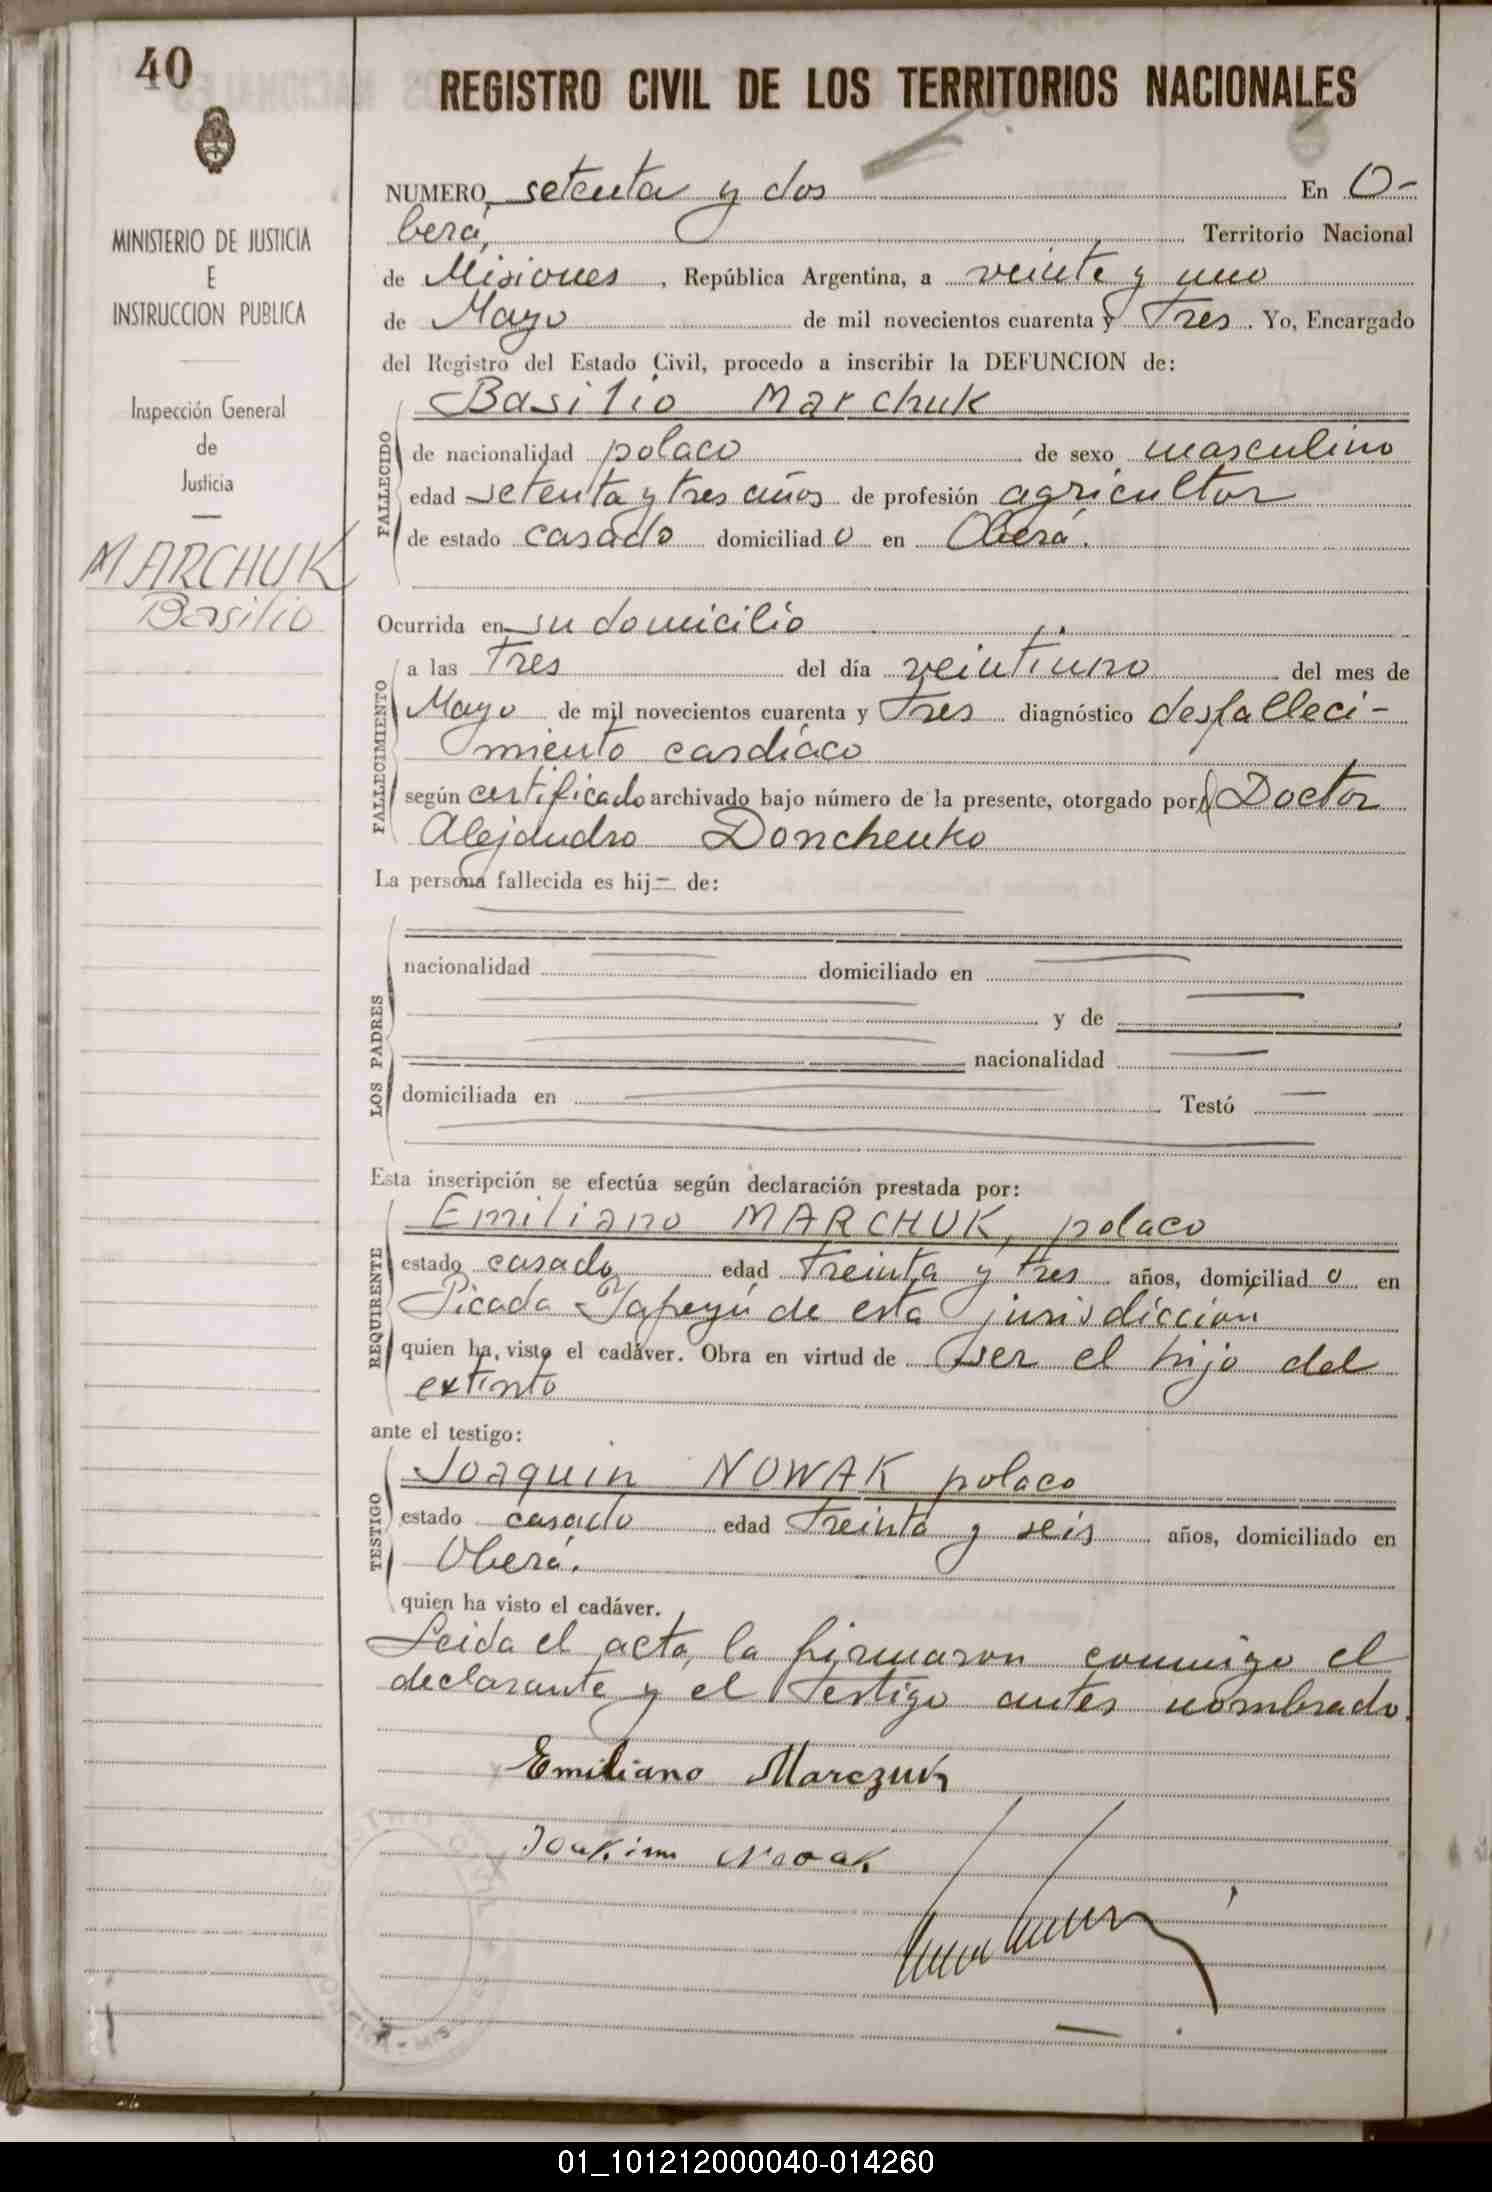 40
REGISTRO CIVIL DE LOS TERRITORIOS NACIONALES
MINISTERIO DE JUSTICIA
E
INSTRUCCION PUBLICA
Inspección General
de
Justicia
MARCHUK
Basilio
NUMERO setenta y dos En O-
berá, Territorio Nacional
de Misiones, República Argentina, a veinte y uno
de Mayo de mil novecientos cuarenta y Tres. Yo, Encargado
del Registro del Estado Civil, procedo a inscribir la DEFUNCION de:
FALLECIDO
Basilio Marchuk
de nacionalidad polaco de sexo masculino
edad setenta y tres años de profesión agricultor
de estado casado domiciliado en Oberá.
Ocurrida en su domicilio
FALLECIMIENTO
a las Tres del día veintiuno del mes de
Mayo de mil novecientos cuarenta y Tres diagnóstico desfalleci-
miento cardíaco
según certificado archivado bajo número de la presente, otorgado por Doctor
Alejandro Donchenko
La persona fallecida es hij- de:
LOS PADRES
nacionalidad domiciliado en
y de
nacionalidad
domiciliada en Testó
Esta inscripción se efectúa según declaración prestada por:
REQUIRENTE
Emiliano MARCHUK, polaco
estado casado edad Treinta y tres años, domiciliado en
Picada Yapeyú de esta jurisdiccion
quien ha visto el cadáver. Obra en virtud de ser el hijo del
extinto
ante el testigo:
TESTIGO
Joaquin NOWAK polaco
estado casado edad Treinta y seis años, domiciliado en
Oberá.
quien ha visto el cadáver.
Leida el acta, la firmaron conmigo el
declarante y el Testigo antes nombrado.
Emiliano Marczuk
Joakim Nowak
01_101212000040-014260